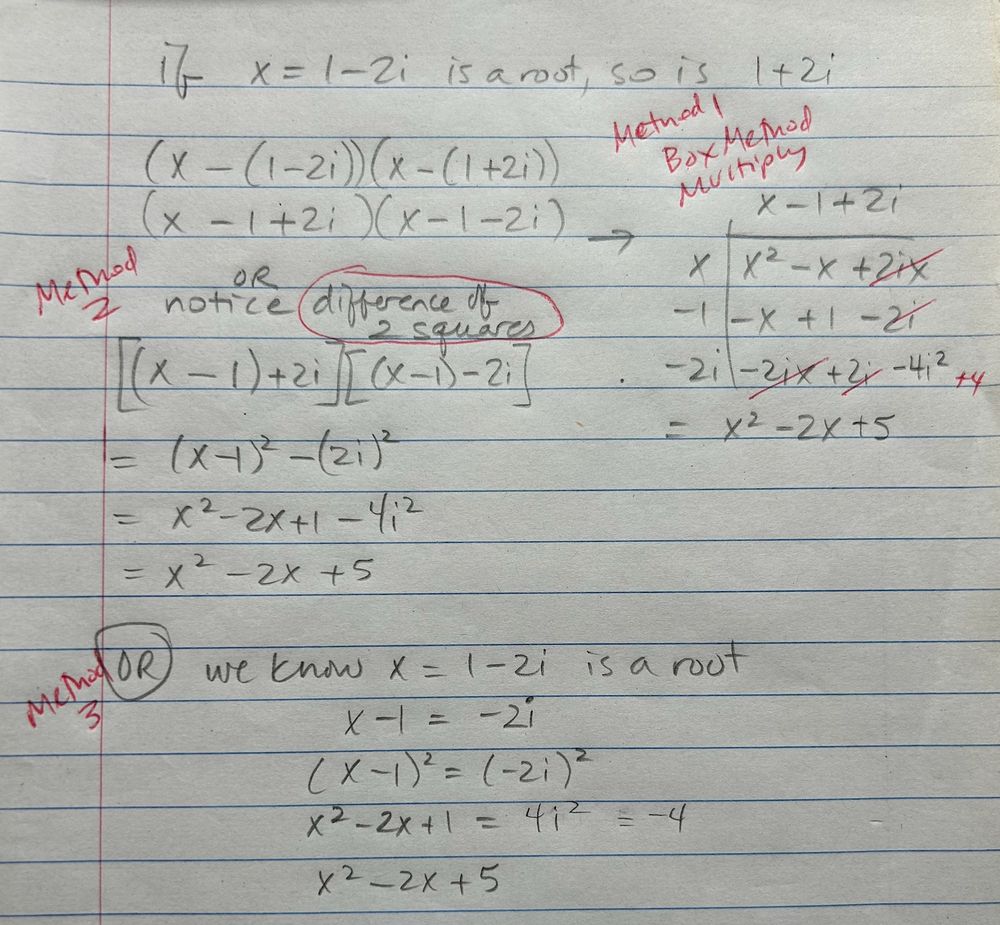 if x = 1-2i is a root, so is 1+2i
(x - (1-2i))(x-(1+2i))
(x - 1+2i)(x-1-2i) →
Method 1
Box Method
Multiply
x-1+2i
x | x² -x +2ix
-1 | -x +1 -2i
-2i | -2ix +2i -4i² +4
= x² -2x+5
Method 2
OR
notice difference of
2 squares
[(x-1)+2i][(x-1)-2i]
= (x-1)² -(2i)²
= x²-2x+1 -4i²
= x² -2x +5
Method 3
OR we know x = 1-2i is a root
x-1 = -2i
(x-1)² = (-2i)²
x²-2x+1 = 4i² = -4
x²-2x+5